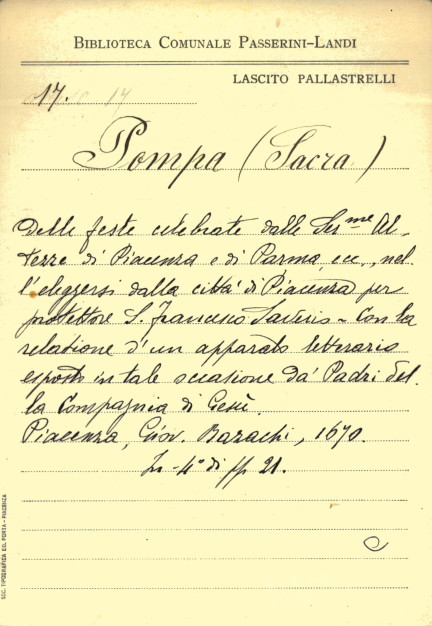 BIBLIOTECA COMUNALE PASSERINI-LANDI
LASCITO PALLASTRELLI
17.
Pompa (Sacra)
Delle feste celebrate dalle Ser.me Al-
tezze di Piacenza e di Parma, ecc., nel-
l'eleggersi dalla città di Piacenza per
protettore S. Francesco Saverio - Con la
relatione d'un apparato letterario
esposto in tale occasione da' Padri del-
la Compagnia di Gesù.
Piacenza, Giov. Bazachi, 1670.
In-4° di pp. 21.
SOC. TIPOGRAFICA ED. PORTA - PIACENZA